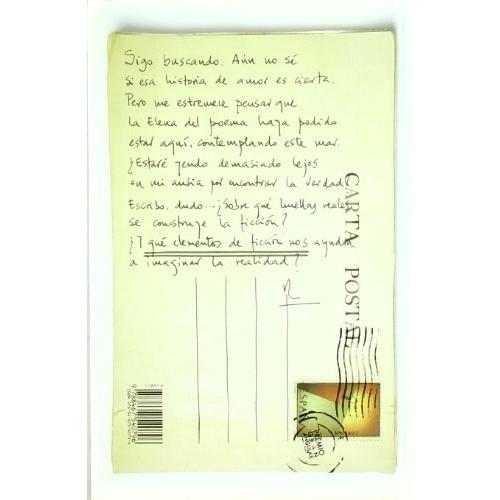 Sigo buscando. Aún no sé
si esa historia de amor es cierta.
Pero me estremece pensar que
la Elena del poema haya podido
estar aquí, contemplando este mar.
¿Estaré yendo demasiado lejos
en mi ansia por encontrar la verdad?
Escribo, dudo... ¿Sobre qué huellas reales
se construye la ficción?
¿Y qué elementos de ficción nos ayudan
a imaginar la realidad?
CARTA POSTAL
ESPAÑA
PREMIO
GRAN
ANGULAR